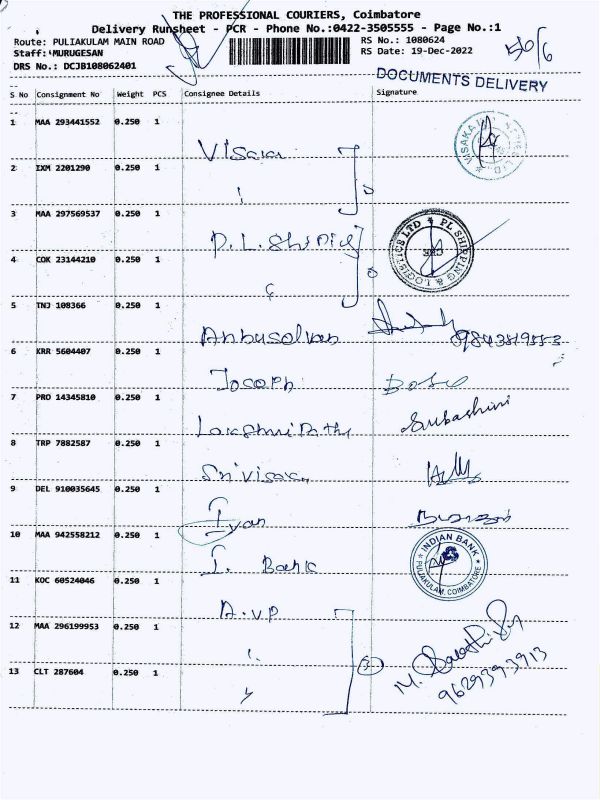 THE PROFESSIONAL COURIERS, Coimbatore
Delivery Runsheet - PCR - Phone No.:0422-3505555 - Page No.:1
Route: PULIAKULAM MAIN ROAD RS No.: 1080624
Staff: MURUGESAN RS Date: 19-Dec-2022
DRS No.: DCJB108062401
DOCUMENTS DELIVERY
S No Consignment No Weight PCS Consignee Details Signature
1 MAA 293441552 0.250 1
2 IXM 2201290 0.250 1
3 MAA 297569537 0.250 1
PL SHIPPING & LOGISTICS LTD
4 COK 23144210 0.250 1
5 TNJ 108366 0.250 1
Anbuselvan
6 KRR 5604407 0.250 1
Joseph
7 PRO 14345810 0.250 1
Subashini
8 TRP 7882587 0.250 1
9 DEL 910035645 0.250 1
10 MAA 942558212 0.250 1
I. Bank
INDIAN BANK
PULIAKULAM, COIMBATORE
11 KOC 60524046 0.250 1
A.V.P
12 MAA 296199953 0.250 1
13 CLT 287604 0.250 1
9629393913